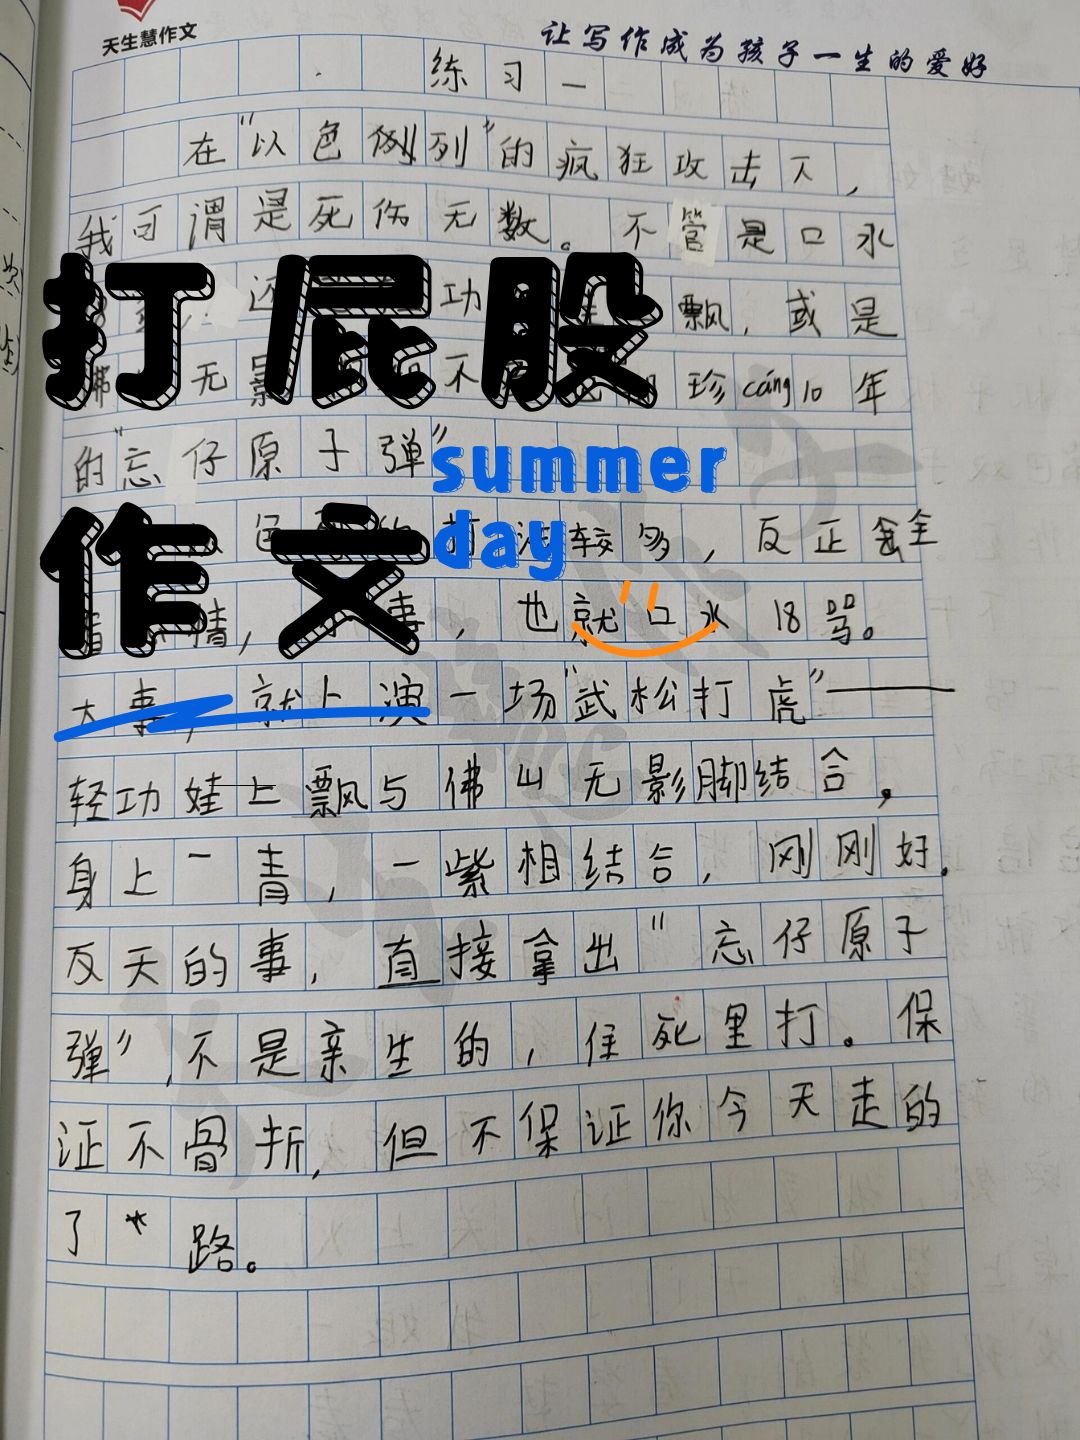 天生慧作文
让写作成为孩子一生的爱好
练习一
在"以色例列"的疯狂攻击下，
我可谓是死伤无数。不管是口水
还 功 飘，或是
佛 无影 不 珍cáng10年
的"忘仔原子弹"
打屁股
作文
summer
day
色 打法较多，反正全
看 情， 事，也就"口水18骂。
大事，就上演一场"武松打虎"——
轻功娃上飘与佛山无影脚结合，
身上一青，一紫相结合，刚刚好。
反天的事，直接拿出"忘仔原子
弹"，不是亲生的，住死里打。保
证不骨折，但不保证你今天走的
了 路。